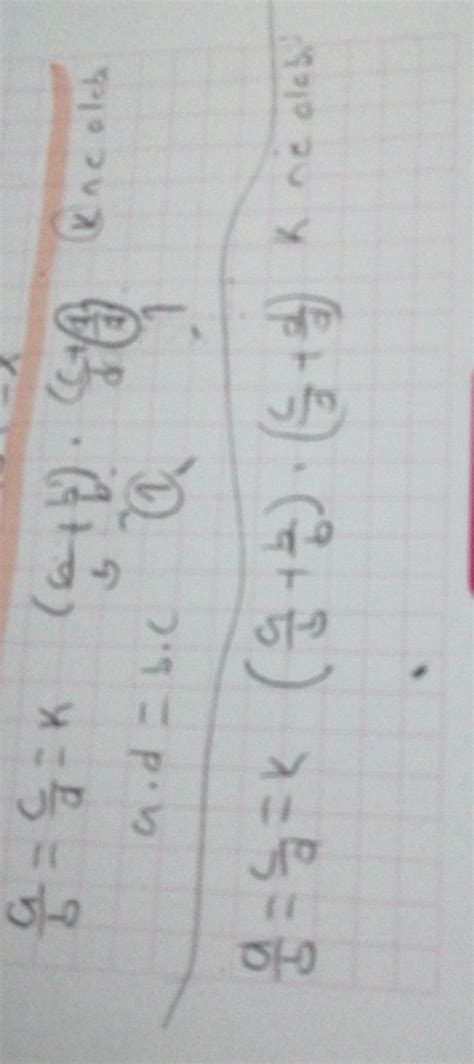 a/b = c/d = K (a/b + b/b) · (c/d + d/d) K ne olab
a.d = b.c 1 1
a/b = c/d = K (a/b + b/b) · (c/d + d/d) K ne olabi